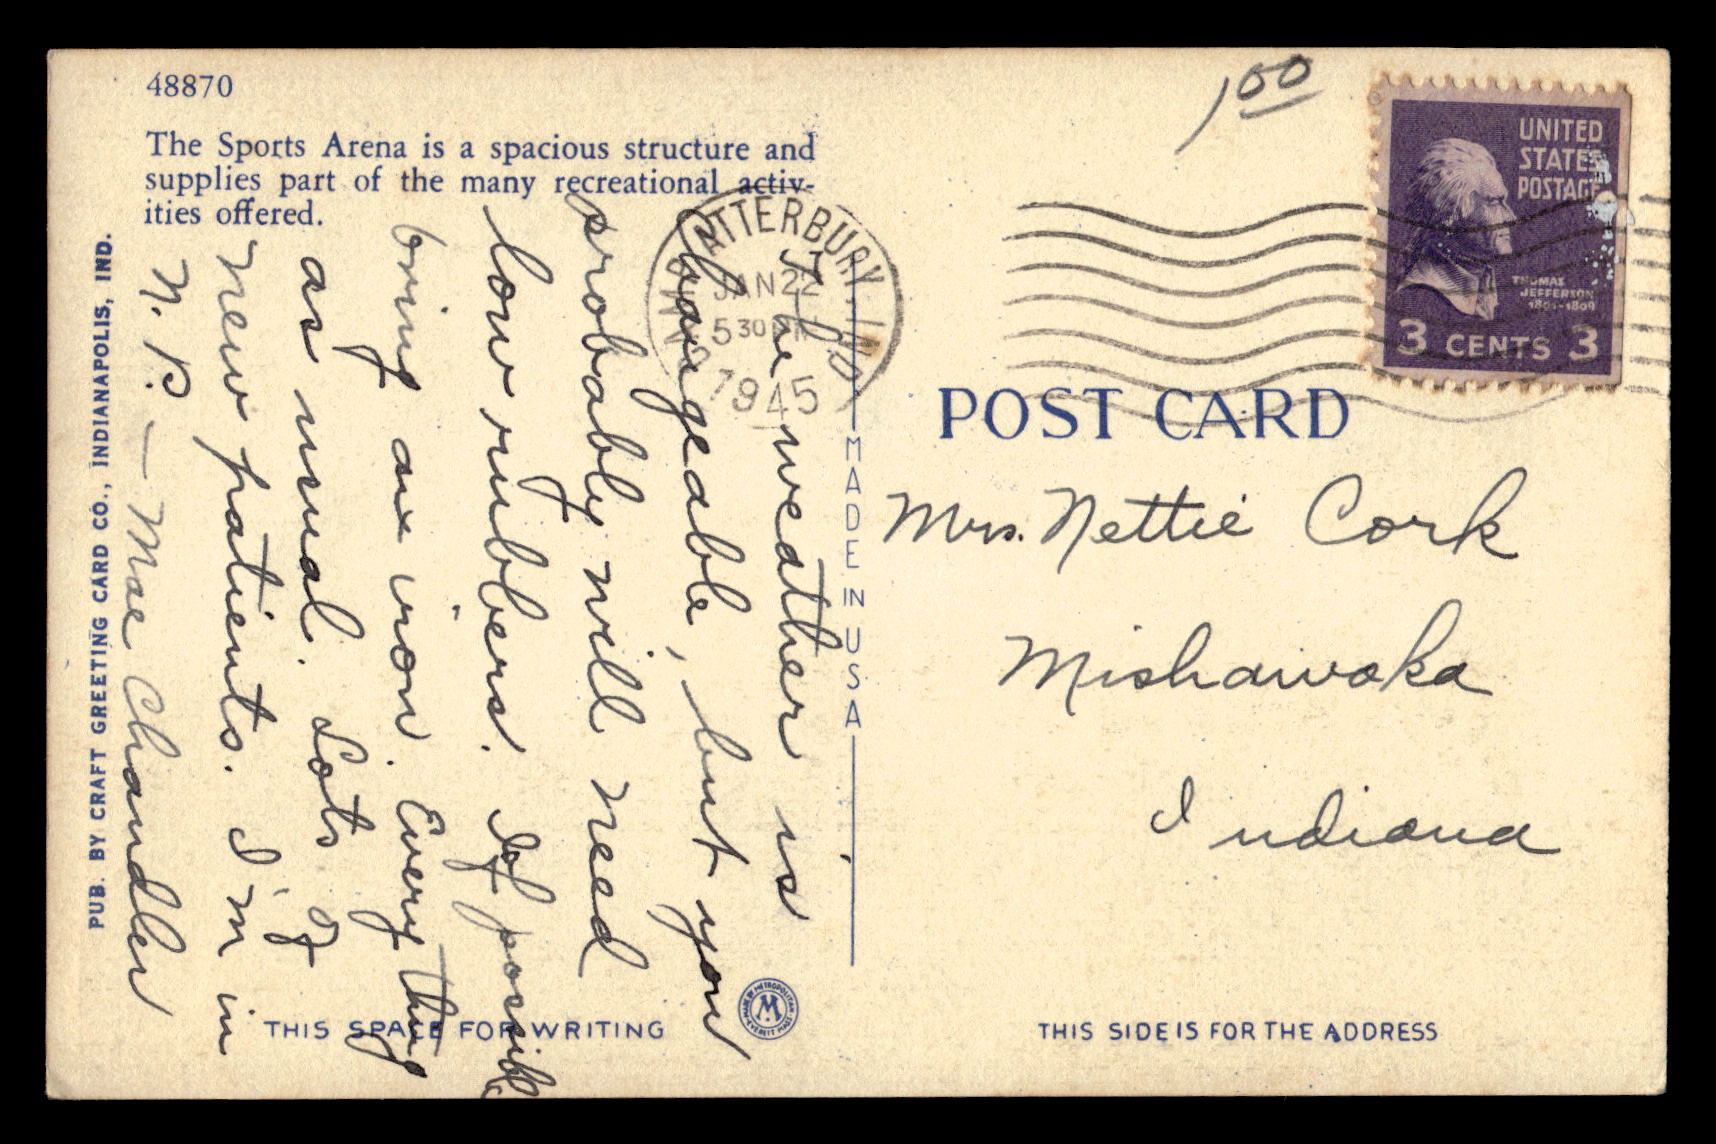 48870
The Sports Arena is a spacious structure and
supplies part of the many recreational activ-
ities offered.
PUB. BY CRAFT GREETING CARD CO., INDIANAPOLIS, IND.
The weather is
changeable, but you
probably will need
low rubbers. If possible
bring an iron. Every thing
as usual. Lots of
new patients. I'm in
N. P. — Mae Chandler
ATTERBURY, IND
JAN 22
5 30 PM
1945
MADE IN USA
THIS SPACE FOR WRITING
M
1 00
UNITED
STATES
POSTAGE
THOMAS
JEFFERSON
1801-1809
3 CENTS 3
POST CARD
Mrs. Nettie Cork
Mishawaka
Indiana
THIS SIDE IS FOR THE ADDRESS